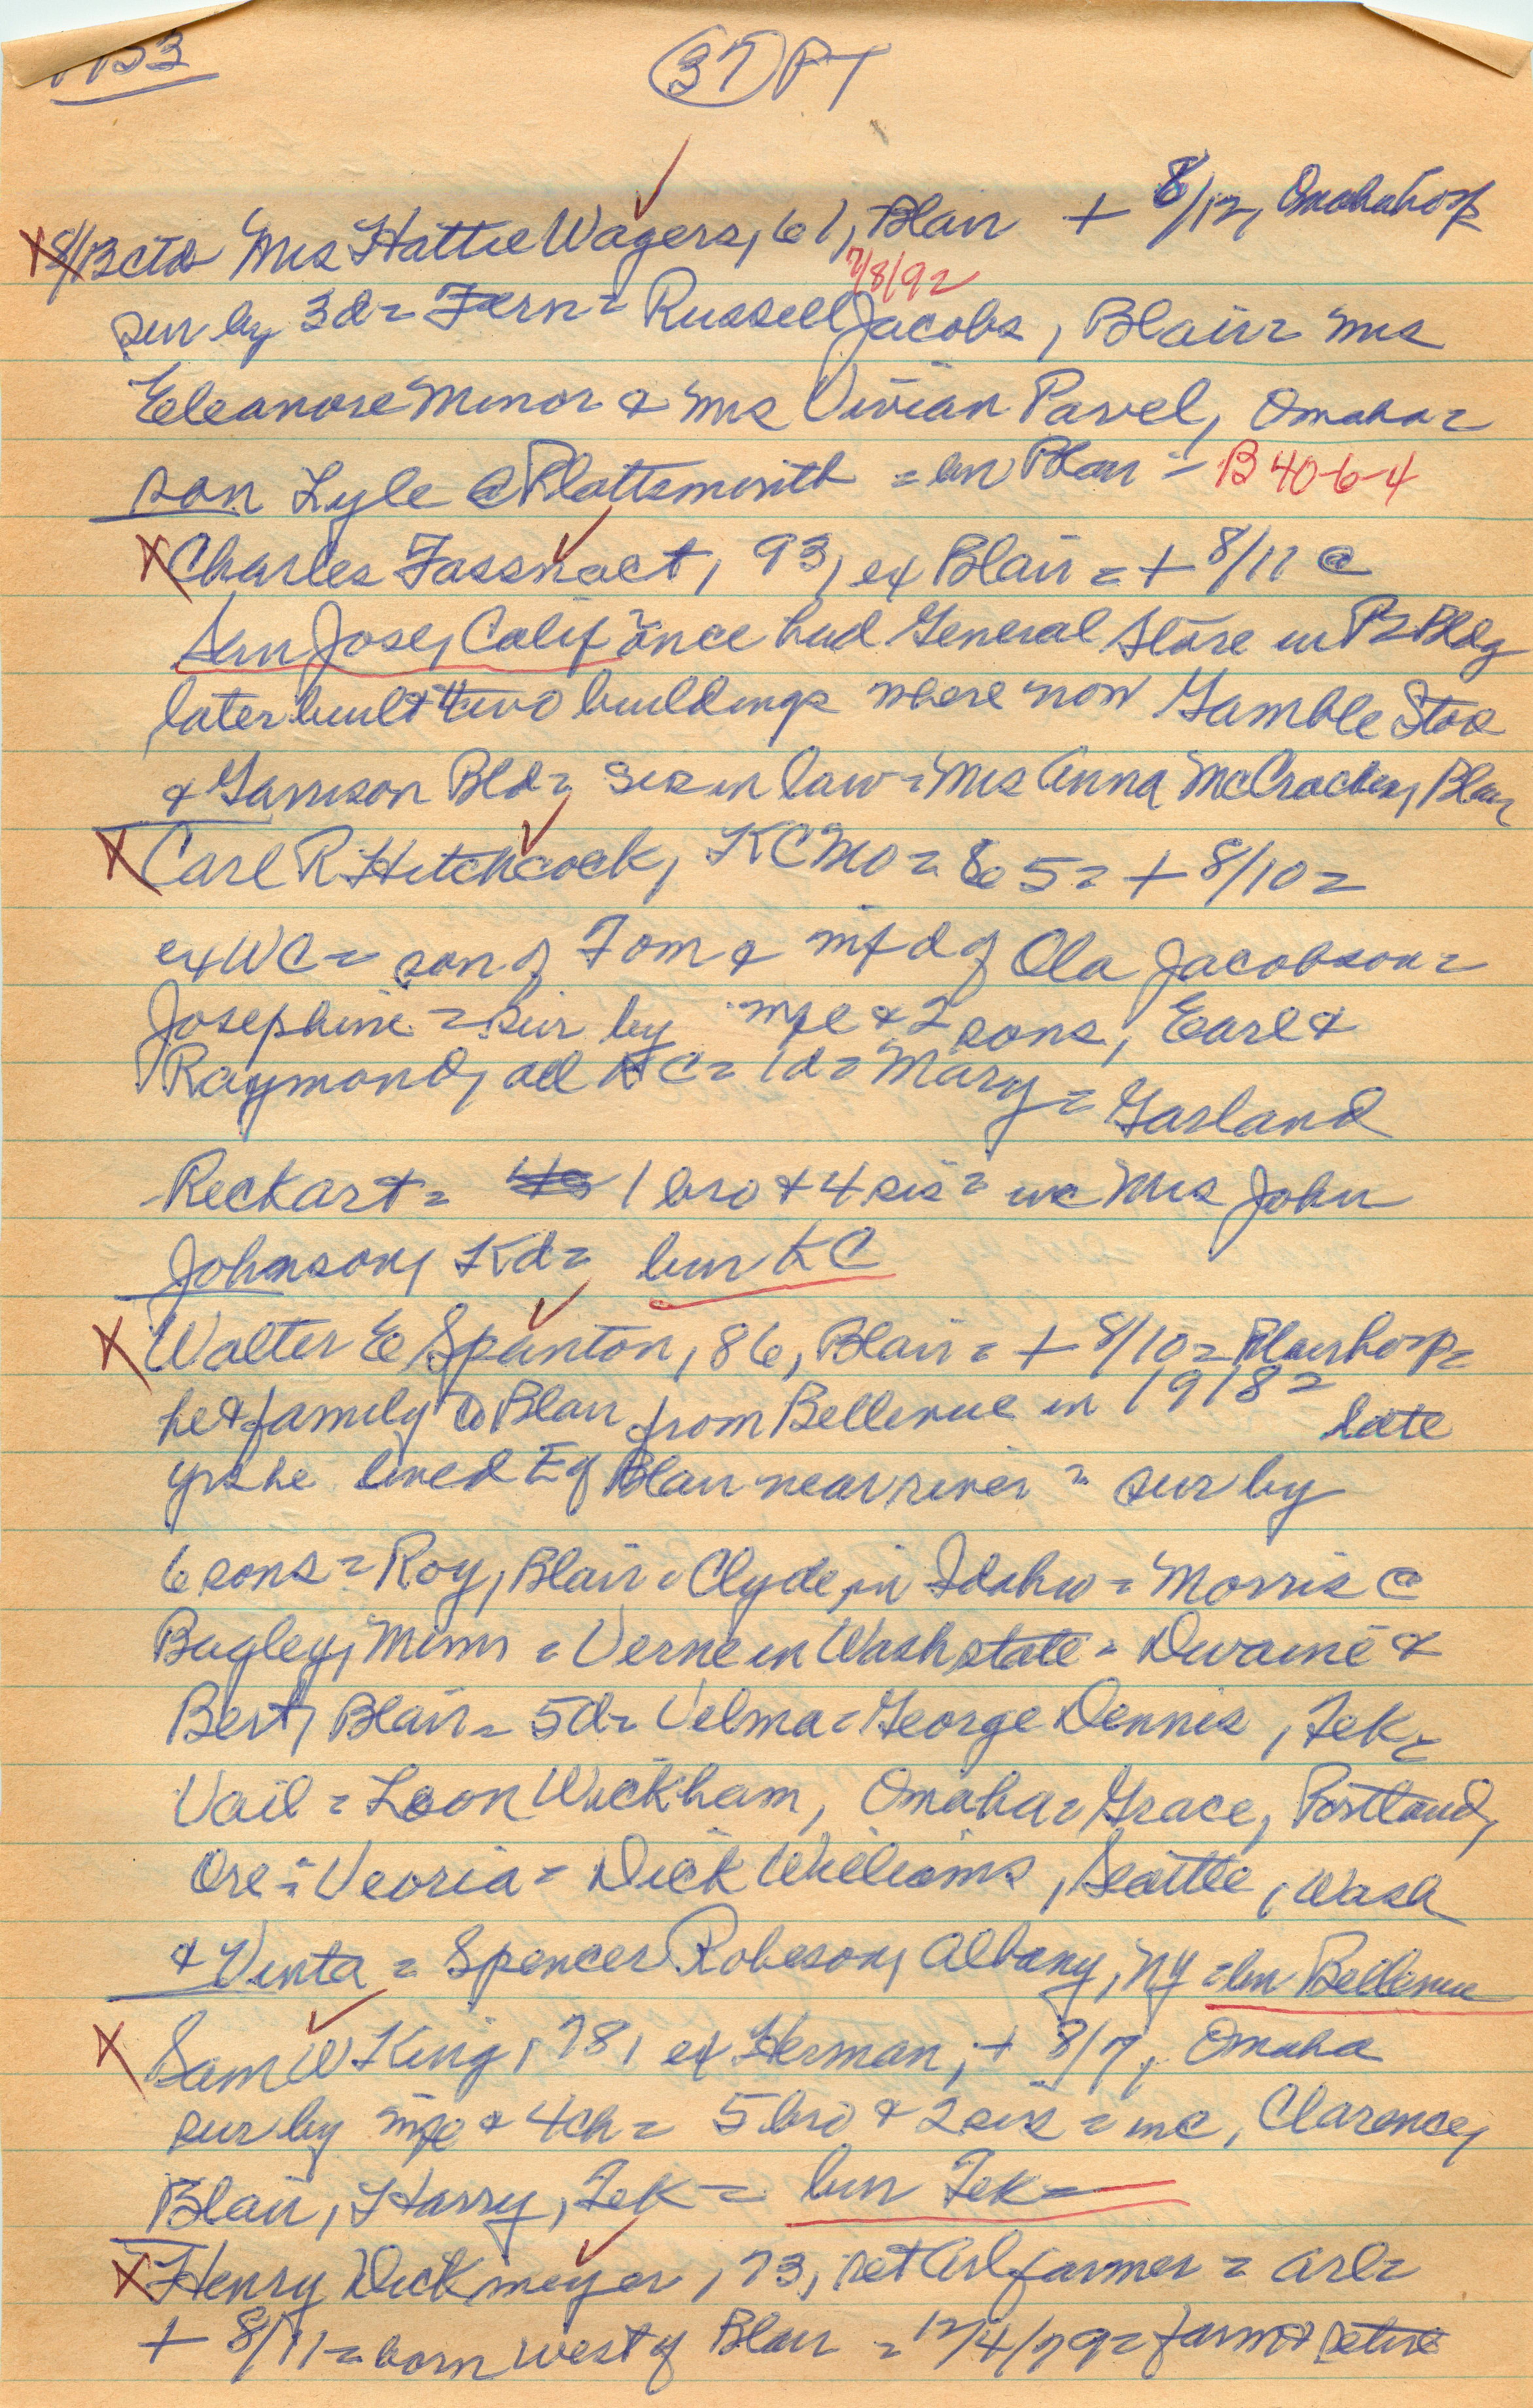 1953 (37) PT
8/13 ctz Mrs Hattie Wagers, 61, Blair + 8/12, Omaha hosp
7/8/92
sur by 3d = Fern = Russell Jacobs, Blair = Mrs
Eleanore Minor & Mrs Vivian Pavel, Omaha =
son Lyle @ Plattsmouth = bur Blair - B 40-6-4
X Charles Fassnact, 93, ex Blair = + 8/11 @
San Jose, Calif = once had General Store in P2 Bldg
later built two buildings where now Gamble Store
& Garrison Bld = sis in law = Mrs Anna McCracken, Blair
X Carl R Hitchcock, KC Mo = 65 = + 8/10 =
ex WC = son of Tom & mfd of Ola Jacobson =
Josephine = sur by mfe & 2 sons, Earl &
Raymond, all KC = 1d = Mary = Garland
Reckart = 1 bro & 4 sis = inc Mrs John
Johnson, Kd = bur KC
X Walter E Spanton, 86, Blair = + 8/10 = Blair hosp =
he & family to Blair from Bellevue in 1918 = late
yrs he lived E of Blair near river = sur by
6 sons = Roy, Blair = Clyde, in Idaho = Morris @
Bagley, Minn = Verne in Wash state = Dwaine &
Bert, Blair = 5d = Velma = George Dennis, Tek =
Vail = Leon Wickham, Omaha = Grace, Portland,
Ore = Veoria = Dick Williams, Seattle, Wash
& Venta = Spencer Robeson, Albany, NY = bur Bellevue
X Sam W King, 78, ex Herman, + 8/7, Omaha
sur by mfe & 4ch = 5 bro & 2 sis = inc, Clarence,
Blair, Harry, Tek = bur Tek =
X Henry Dickmeyer, 73, ret Arl farmer = Arl =
+ 8/11 = born west of Blair = 12/4/79 = farm & retire